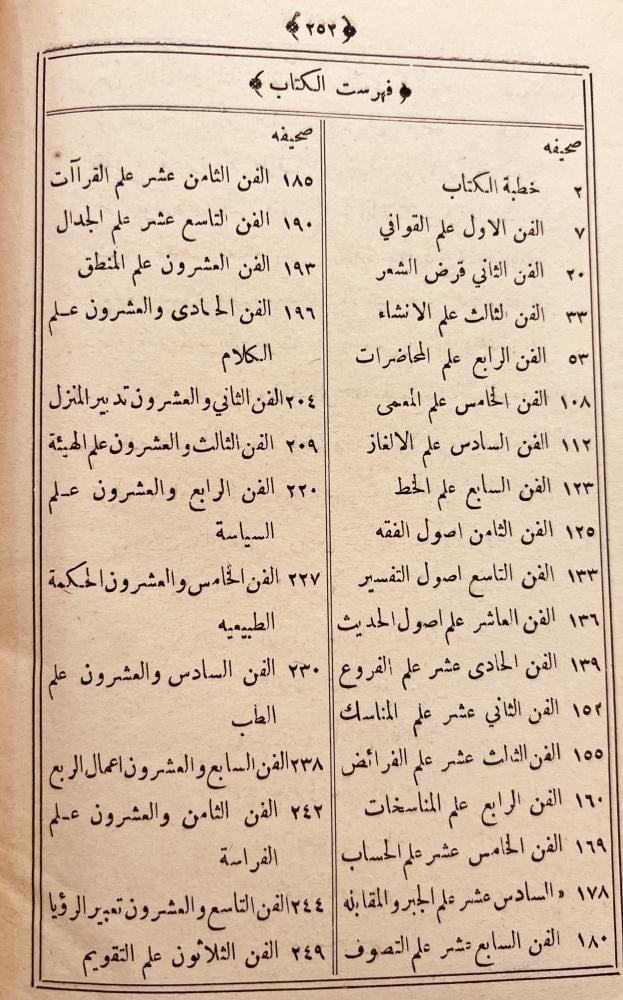 ﴿ ٢٥٢ ﴾
﴿ فهرست الكتاب ﴾
صحيفه
٢ خطبة الكتاب
٧ الفن الاول علم القوافي
٢٠ الفن الثاني قرض الشعر
٣٣ الفن الثالث علم الانشاء
٥٣ الفن الرابع علم المحاضرات
١٠٨ الفن الخامس علم المعمى
١١٢ الفن السادس علم الالغاز
١٢٣ الفن السابع علم الخط
١٢٥ الفن الثامن اصول الفقه
١٣٣ الفن التاسع اصول التفسير
١٣٦ الفن العاشر علم اصول الحديث
١٣٩ الفن الحادى عشر علم الفروع
١٥٢ الفن الثاني عشر علم المناسك
١٥٥ الفن الثالث عشر علم الفرائض
١٦٠ الفن الرابع علم المناسخات
١٦٩ الفن الخامس عشر علم الحساب
١٧٨ « السادس عشر علم الجبر والمقابله
١٨٠ الفن السابع عشر علم التصوف
صحيفه
١٨٥ الفن الثامن عشر علم القراآت
١٩٠ الفن التاسع عشر علم الجدال
١٩٣ الفن العشرون علم المنطق
١٩٦ الفن الحادى والعشرون علم
الكلام
٢٠٤ الفن الثاني والعشرون تدبير المنزل
٢٠٩ الفن الثالث والعشرون علم الهيئة
٢٢٠ الفن الرابع والعشرون علم
السياسة
٢٢٧ الفن الخامس والعشرون الحكمة
الطبيعيه
٢٣٠ الفن السادس والعشرون علم
الطب
٢٣٨ الفن السابع والعشرون اعمال الربع
٢٤٢ الفن الثامن والعشرون علم
الفراسة
٢٤٤ الفن التاسع والعشرون تعبير الرؤيا
٢٤٩ الفن الثلاثون علم التقويم